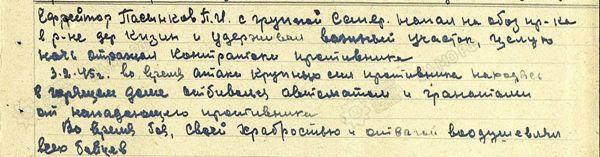 Ефрейтор Пасынков П.И. с группой Семер. напал на обоз пр-ка
в р-не дер Кизин и удерживал важный участок, целую
ночь отражал контратаки противника
3.2.45г. во время атаки крупных сил противника находясь
в горящем доме отбивался автоматом и гранатами
от нападающего противника
Во время боя, своей храбростью и отвагой воодушевлял
всех бойцов